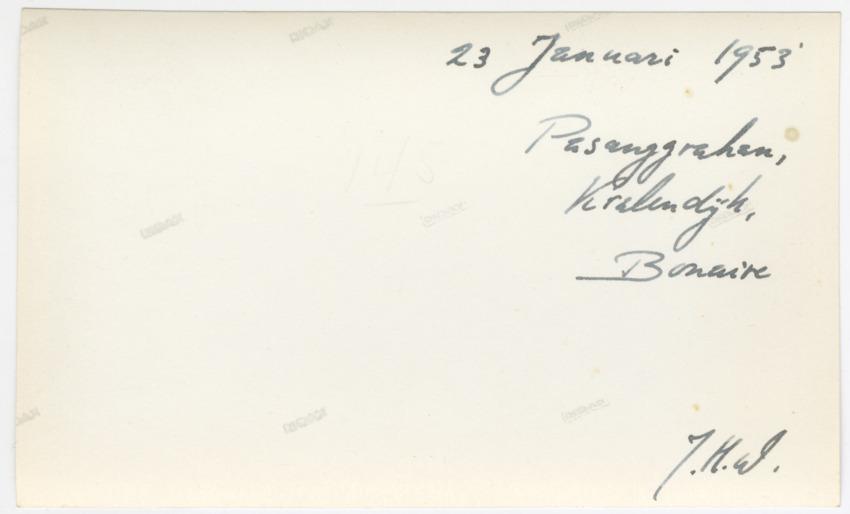 23 Januari 1953
Pasanggrahan,
Kralendijk,
Bonaire
J.H.W.